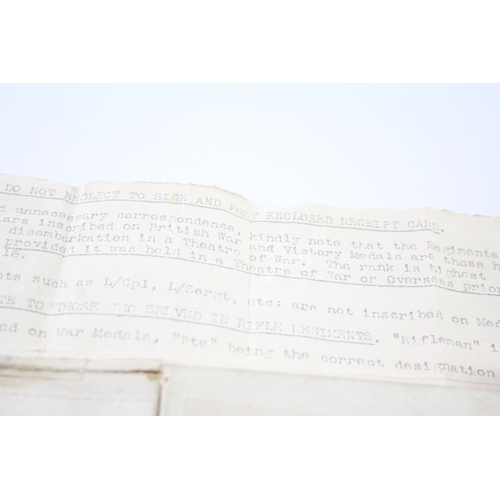 DO NOT NEGLECT TO SIGN AND POST ENCLOSED RECEIPT CARD.
unnecessary correspondence, kindly note that the Regimenta
ars inscribed on British War and Victory Medals are those
disembarkation in a Theatre of War. The rank is highest
provided it was held in a Theatre of War or Overseas prior
18.
ts such as L/Cpl, L/Sergt, etc; are not inscribed on Med
TE TO THOSE WHO SERVED IN RIFLE REGIMENTS. "Rifleman" i
ed on War Medals, "Pte" being the correct designation